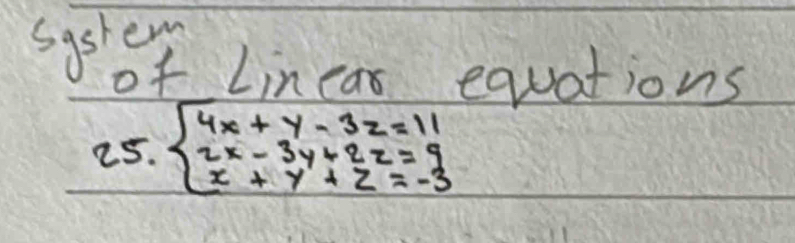 System
of Linear equations
25. { 4x + y - 3z = 11
2x - 3y + 2z = 9
x + y + z = -3